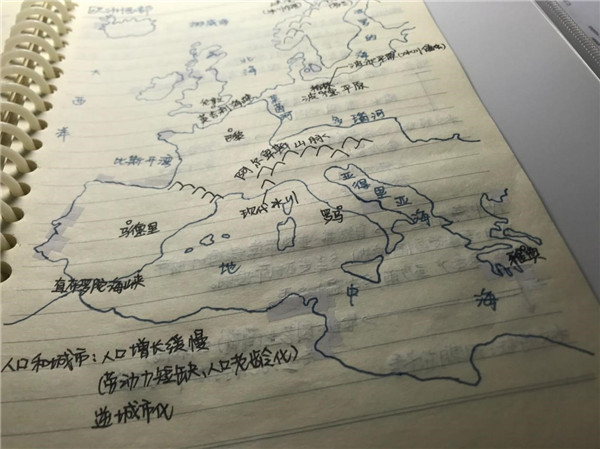 欧洲西部
挪威海
大
西
洋
北
海
波罗的海
波德平原(冰川)
伦敦
英吉利海峡
莱茵河
波德平原
巴黎
多瑙河
比斯开湾
阿尔卑斯山脉
现代冰川
亚得里亚海
马德里
罗马
地
中
海
直布罗陀海峡
人口和城市:人口增长缓慢
(劳动力短缺、人口老龄化)
逆城市化